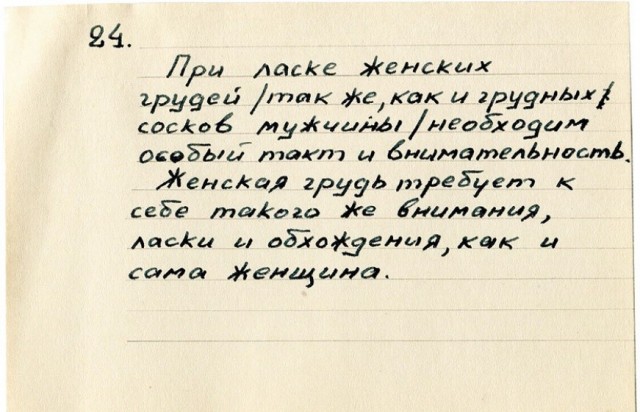 24.
При ласке женских
грудей /так же, как и грудных/
сосков мужчины/необходим
особый такт и внимательность.
Женская грудь требует к
себе такого же внимания,
ласки и обхождения, как и
сама женщина.